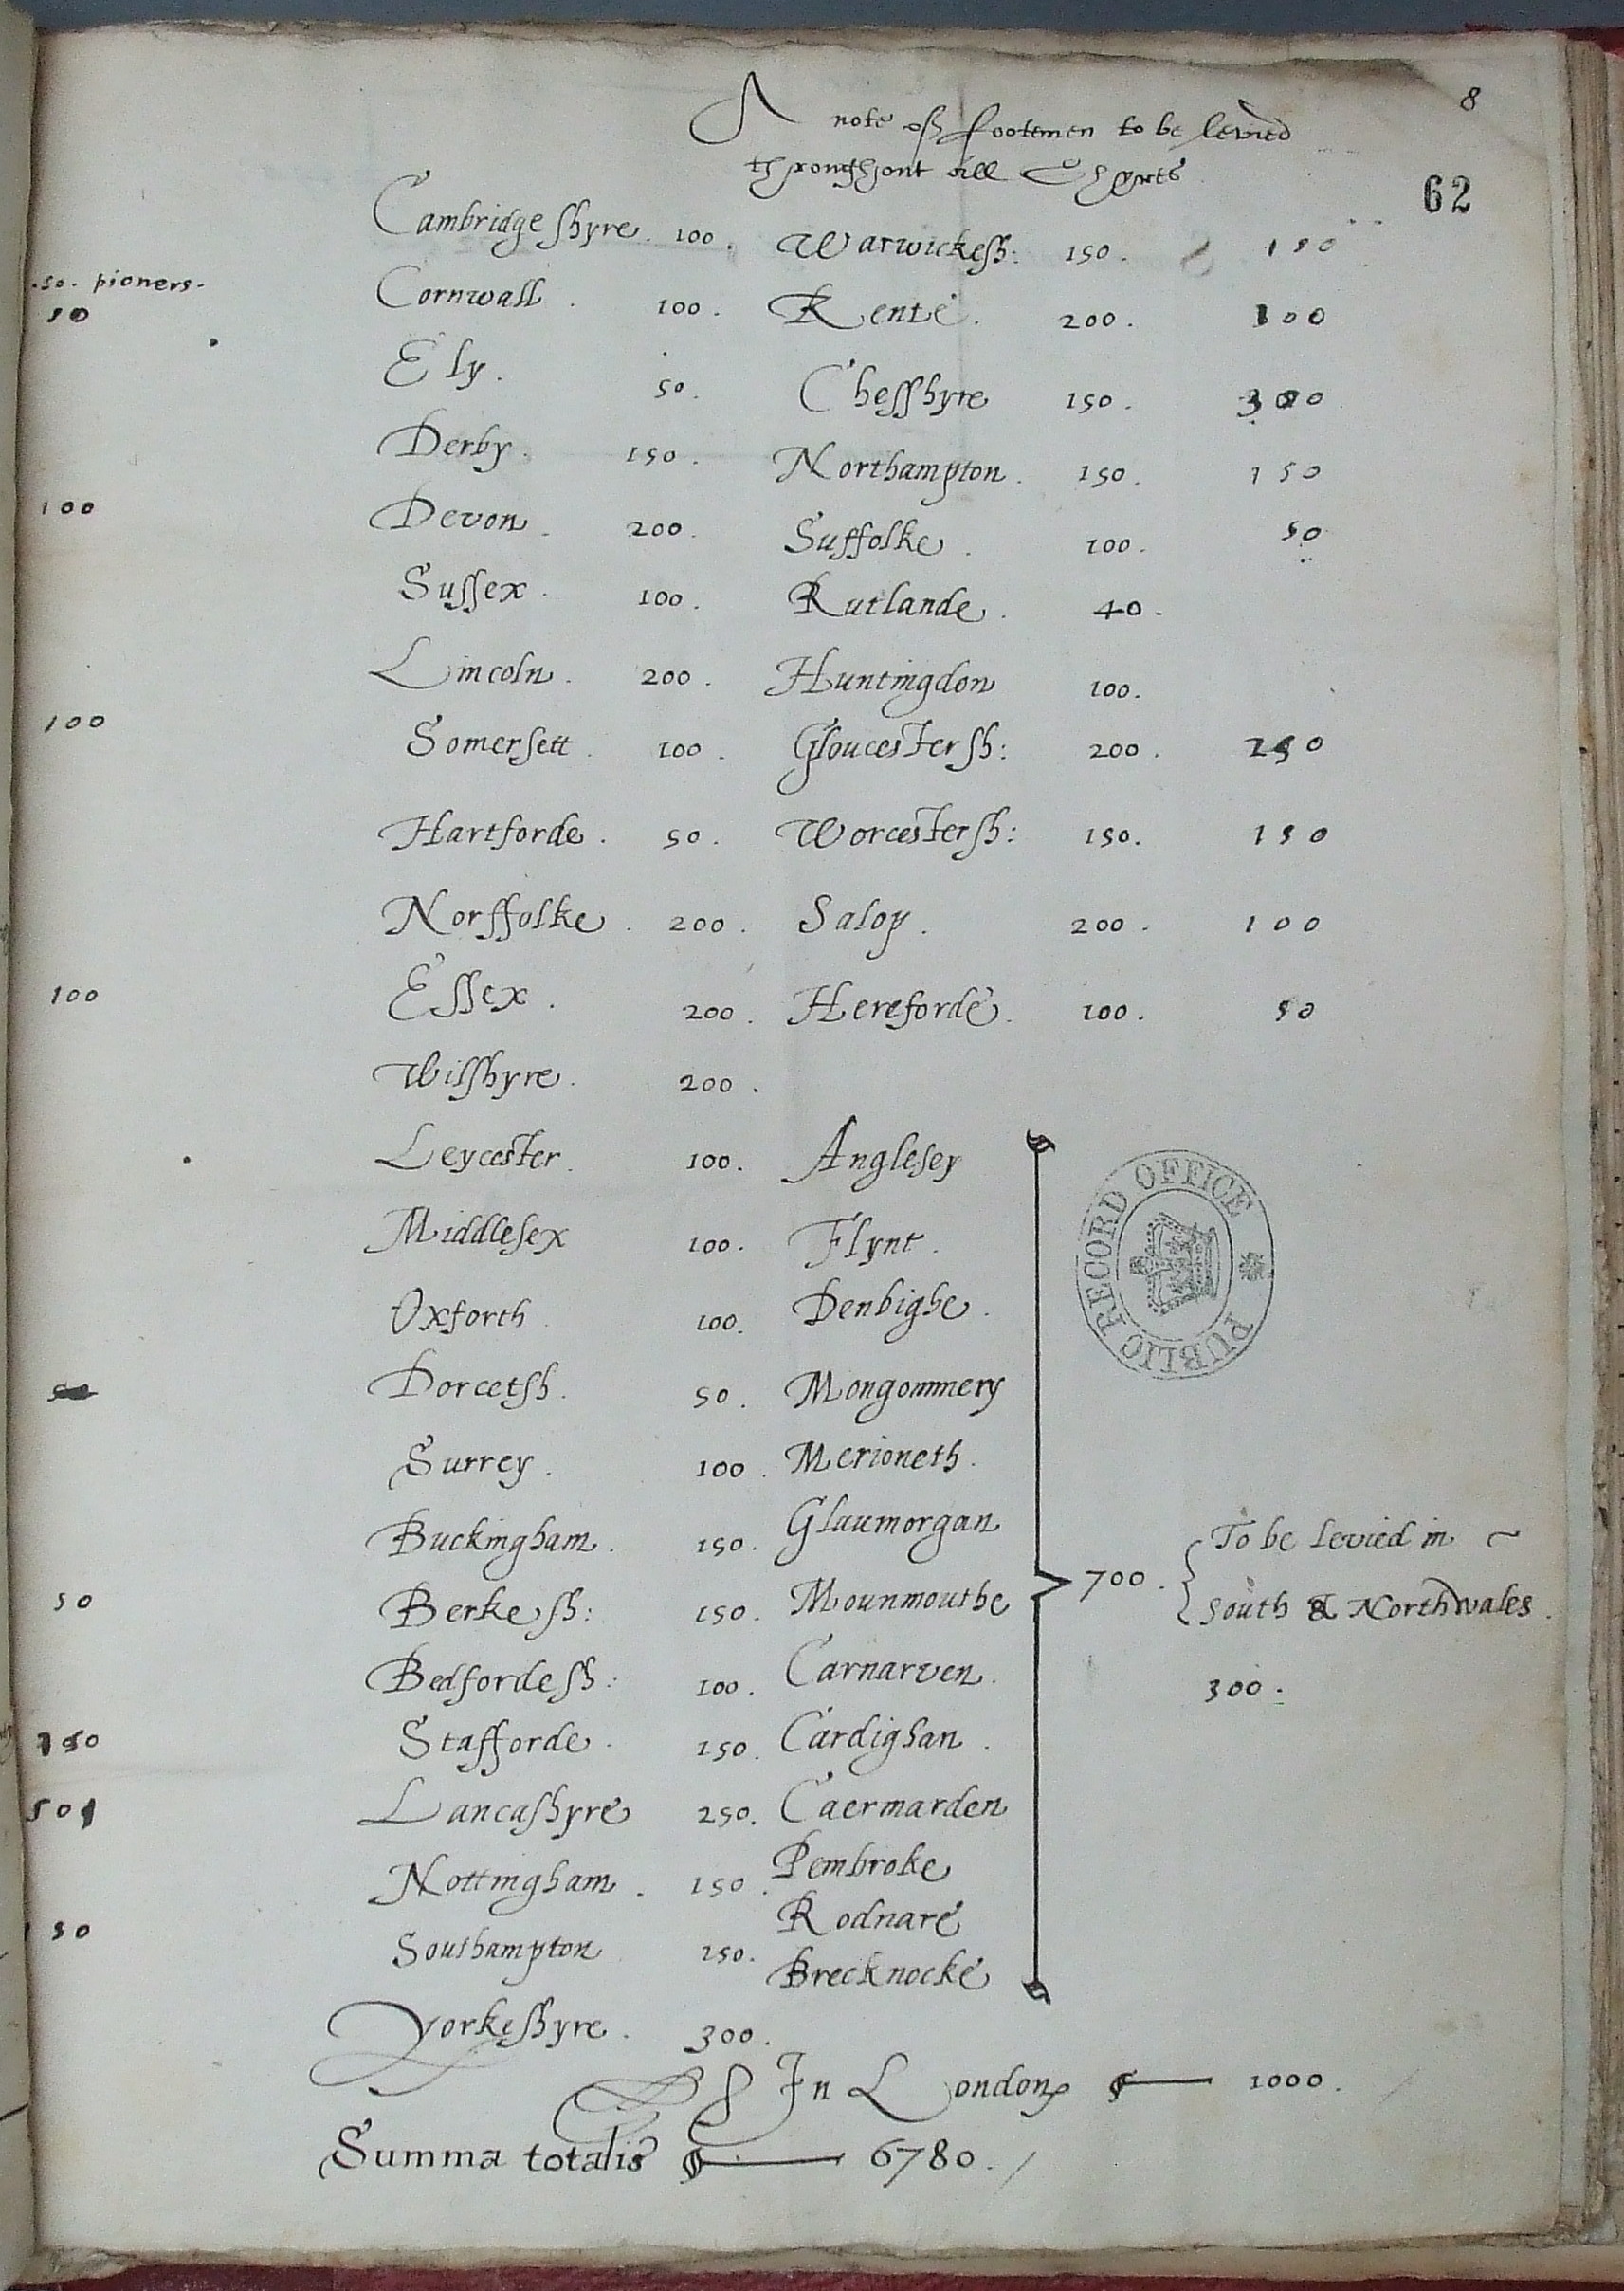 8
A note off footemen to be levied
throughout all Shyres
62
Cambridgeshyre. 100. Warwickesh: 150. 150
.50. pioners.
50 Cornwall. 100. Kente. 200. 100
Ely. 50. Chesshyre 150. 300
Derby. 150. Northampton. 150. 150
100 Devon. 200. Suffolke. 100. 50
Sussex. 100. Rutlande. 40.
Lincoln. 200. Huntingdon 100.
100 Somersett. 100. Gloucestersh: 200. 250
Hartforde. 50. Worcestersh: 150. 150
Norffolke. 200. Salop. 200. 100
100 Essex. 200. Hereforde. 100. 50
Wilshyre. 200.
Leycester. 100. Anglesey
Middlesex 100. Flynt.
Oxforth 100. Denbighe.
50 Dorcetsh. 50. Mongommery
Surrey. 100. Merioneth.
Buckingham. 150. Glaumorgan
50 Berkesh: 150. Mounmouthe 700. To be levied in
South & Northwales.
Bedfordesh: 100. Carnarven. 300.
150 Stafforde. 150. Cardighan.
50 Lancashyre 250. Caermarden
Nottingham. 150. Pembroke
Rodnare
50 Southampton 150. Brecknocke
Yorkeshyre. 300.
In London 1000.
Summa totalis 6780.
PUBLIC RECORD OFFICE